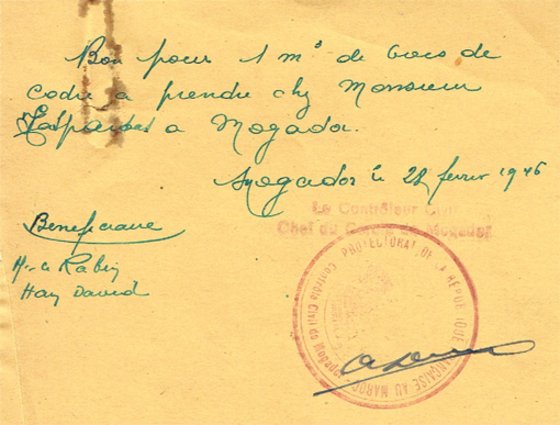 Bon pour 1 m3 de bois de
codre a prendre chez Monsieur
a Mogador.
Mogador le 28 fevrier 1946
Le Contrôleur Civil
Chef du Cercle de Mogador
PROTECTORAT DE LA REPUBLIQUE FRANÇAISE AU MAROC
Contrôle Civil de Mogador
Beneficiaire
Mr le Rabin
Hay David